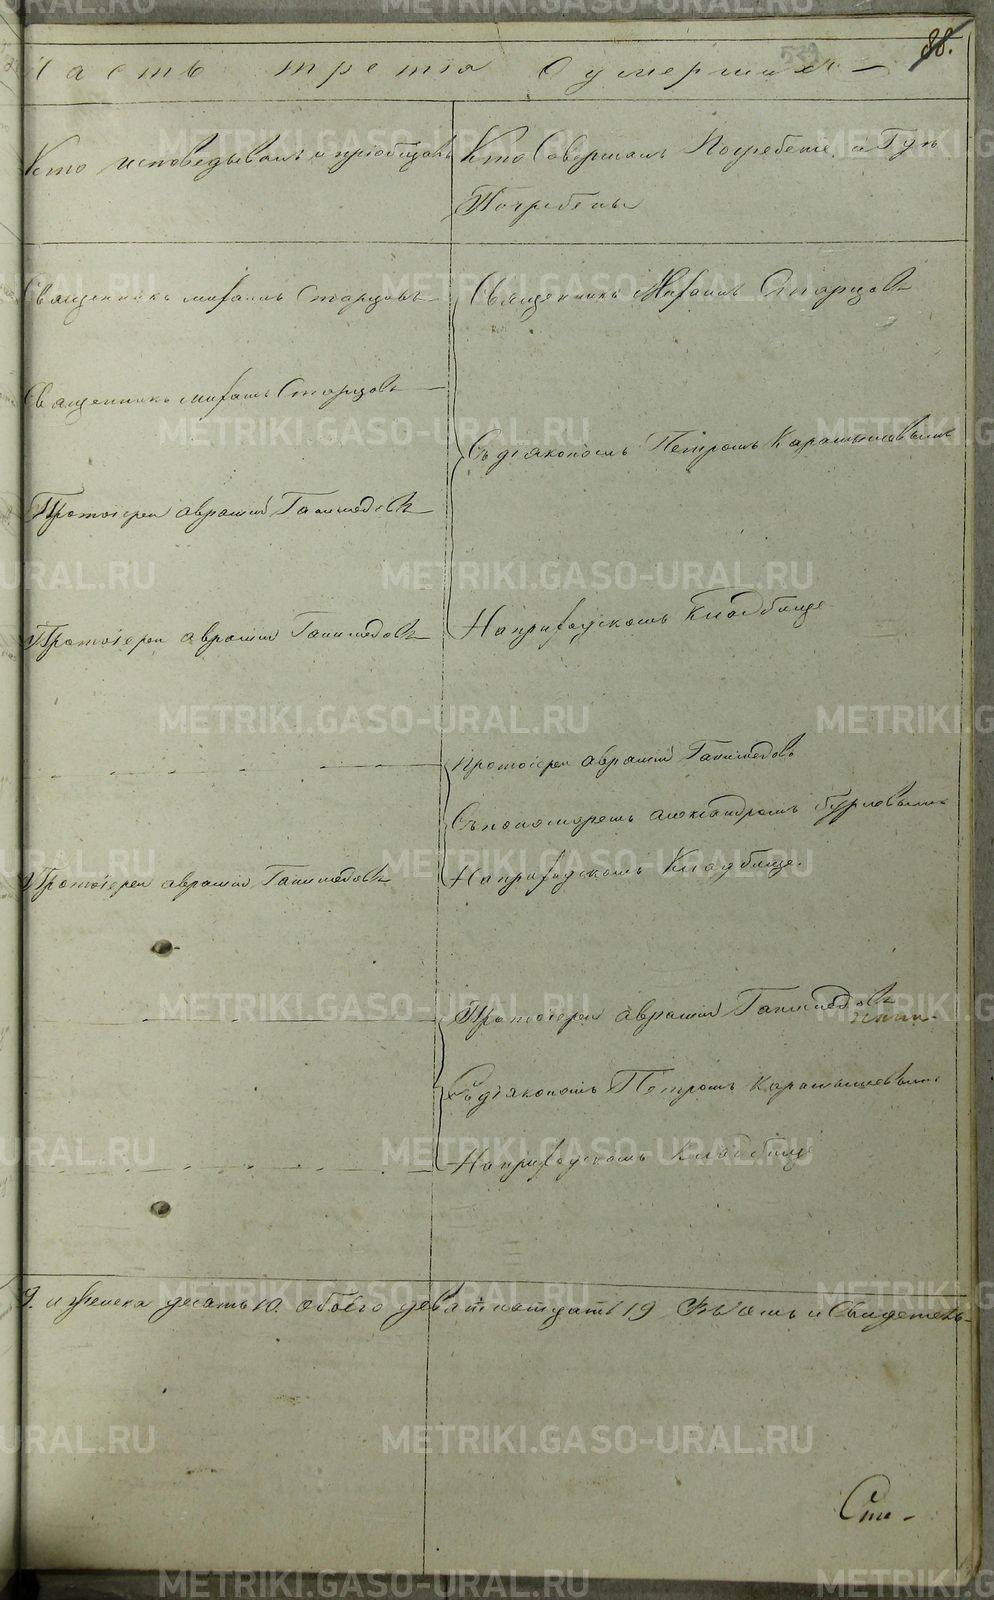 88.
529
Часть третія О умершихъ –
Кто исповедывалъ и пріобщалъ
Кто Совершалъ Погребеніе и Гдѣ
Погребены
Священникъ михаилъ Старцовъ
Священникъ Михаилъ Старцовъ
Священникъ михаилъ Старцовъ
Съ діякономъ Петромъ Карамышевымъ
Протоіерей аврамій Ганимедовъ
Протоіерей аврамій Ганимедовъ
На приходскомъ Кладбище
Протоіерей аврамій Ганимедовъ
Съ пономаремъ александромъ Бурловымъ
Протоіерей аврамій Ганимедовъ
На приходскомъ Кладбище.
Протоіерей аврамій Ганимедовъ
Съ діякономъ Петромъ Карамышевымъ
На приходскомъ Кладбище
9. и женска десять 10. обоего девятнатцать 19 въ чемъ и Свидетель-
METRIKI.GASO-URAL.RU